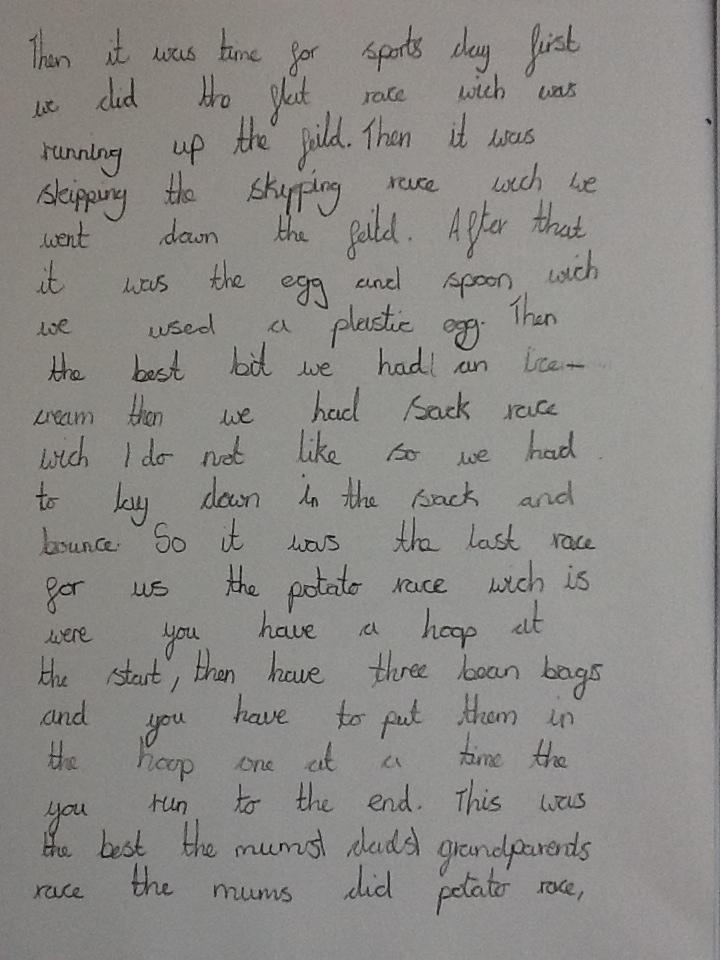 Then it was time for sports day first
we did the flat race wich was
running up the feild. Then it was
skipping the skipping race wich we
went down the feild. After that
it was the egg and spoon wich
we used a plastic egg. Then
the best bit we had an ice-
cream then we had sack race
wich I do not like so we had
to lay down in the sack and
bounce. So it was the last race
for us the potato race wich is
were you have a hoop at
the start, then have three bean bags
and you have to put them in
the hoop one at a time the
you run to the end. This was
the best the mums dads grandparends
race the mums did potato race,